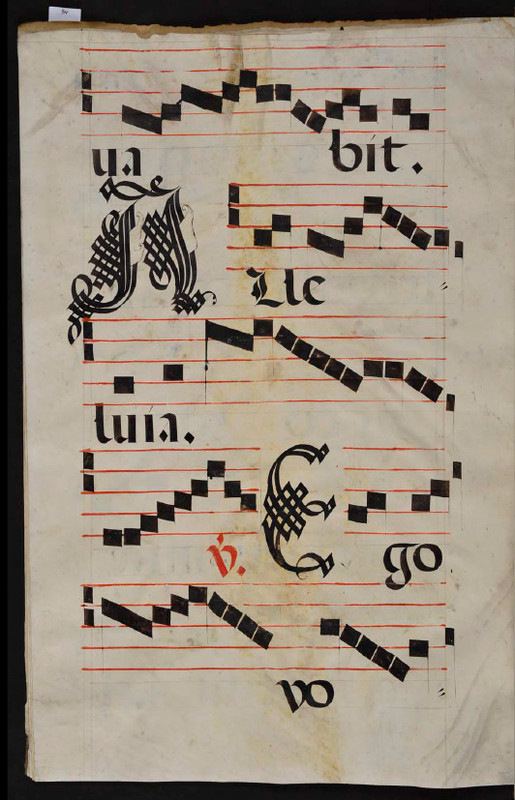 ua bit.
A lle
luia.
℣. Ego
vo